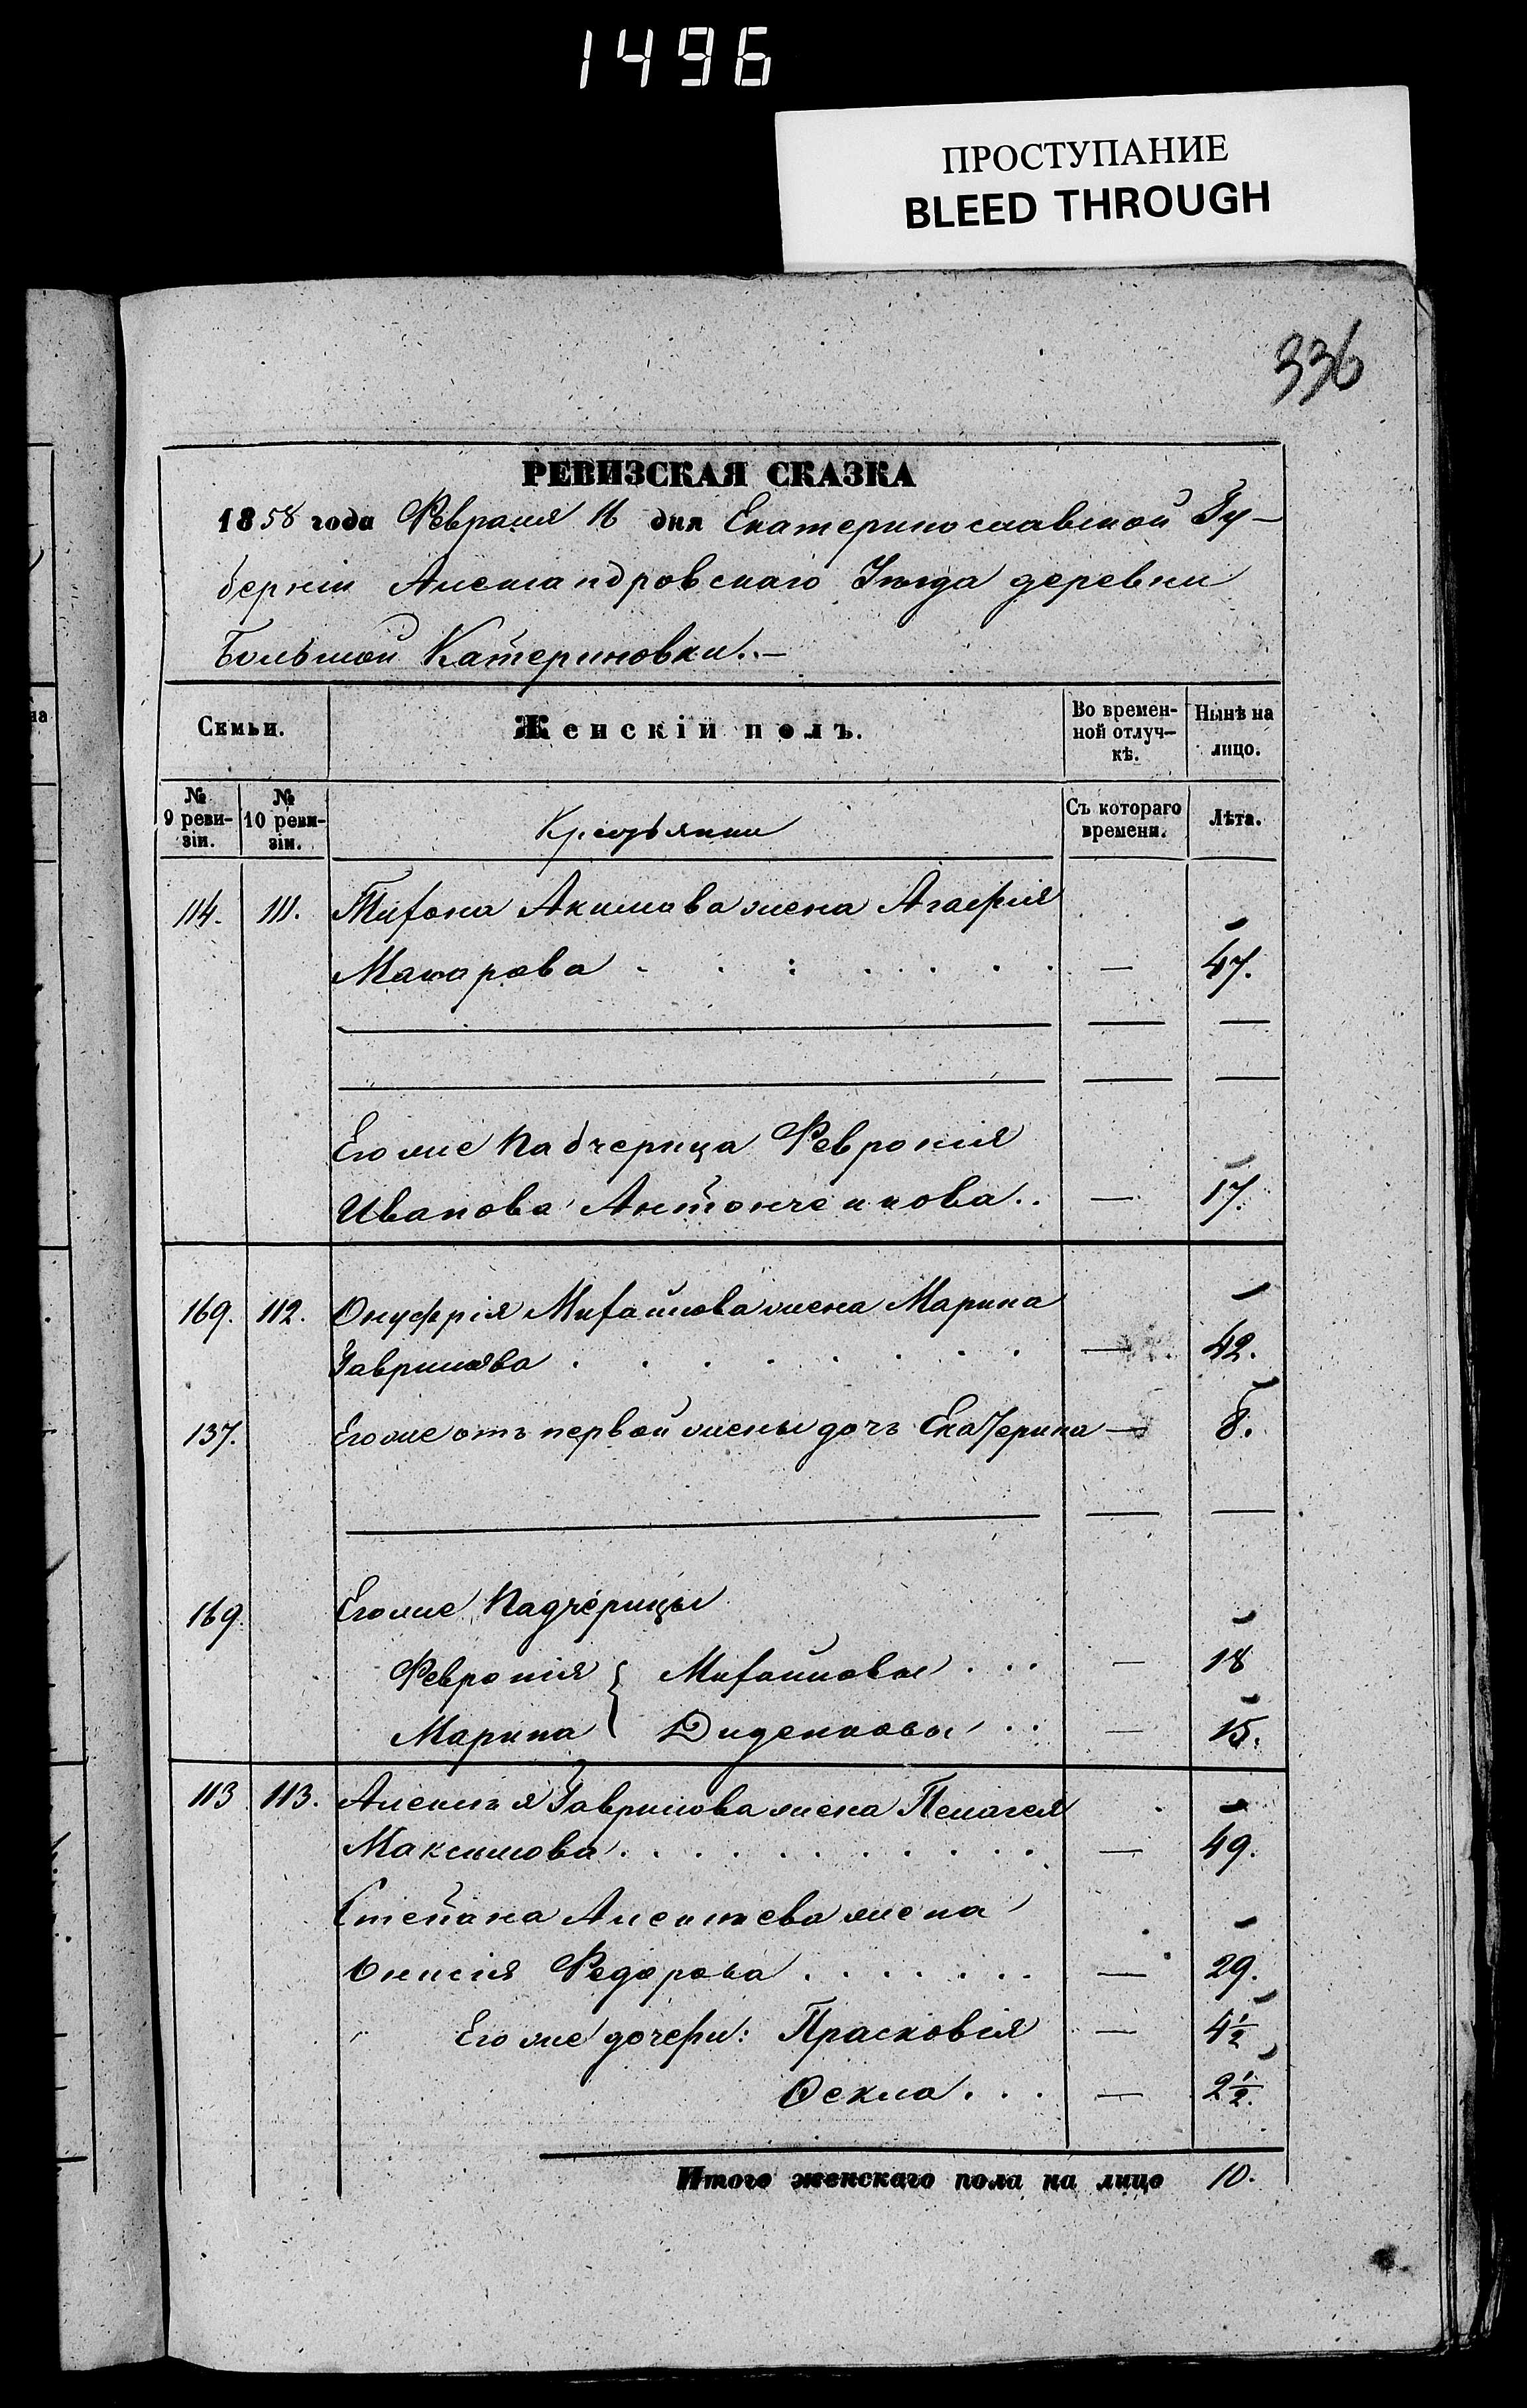 1496
ПРОСТУПАНИЕ
BLEED THROUGH
336
РЕВИЗСКАЯ СКАЗКА
1858 года Февраля 16 дня Екатеринославской Гу–
берніи Александровскаго Уѣзда деревни
Большой Катериновки.–
Семьи. Женскій полъ. Во времен-ной отлуч-кѣ. Нынѣ на лицо.
№ 9 реви-зіи. № 10 реви-зіи. Крестьянки Съ котораго времени. Лѣта.
114. 111. Тихона Акимова жена Агафія
Макарова . . : . . . . . — 47.
Его же Падчерица Февронія
Иванова Антонченкова . . — 17.
169. 112. Онуфрія Михайлова жена Марина
Гаврилова . . . . . . . . — 42.
137. Его же отъ первой жены дочь Екатерина — 8.
169. Его же Падчерицы
Февронія { Михайловы . . . — 18
Марина { Диденковы . . — 15.
113 113. Алексѣя Гаврилова жена Пелагея
Максимова . . . . . . . . — 49.
Степана Алексѣева жена
Онисія Федорова . . . . . . . — 29.
Его же дочери: Прасковія — 4½
Ѳекла . . . — 2½.
Итого женскаго пола на лицо 10.